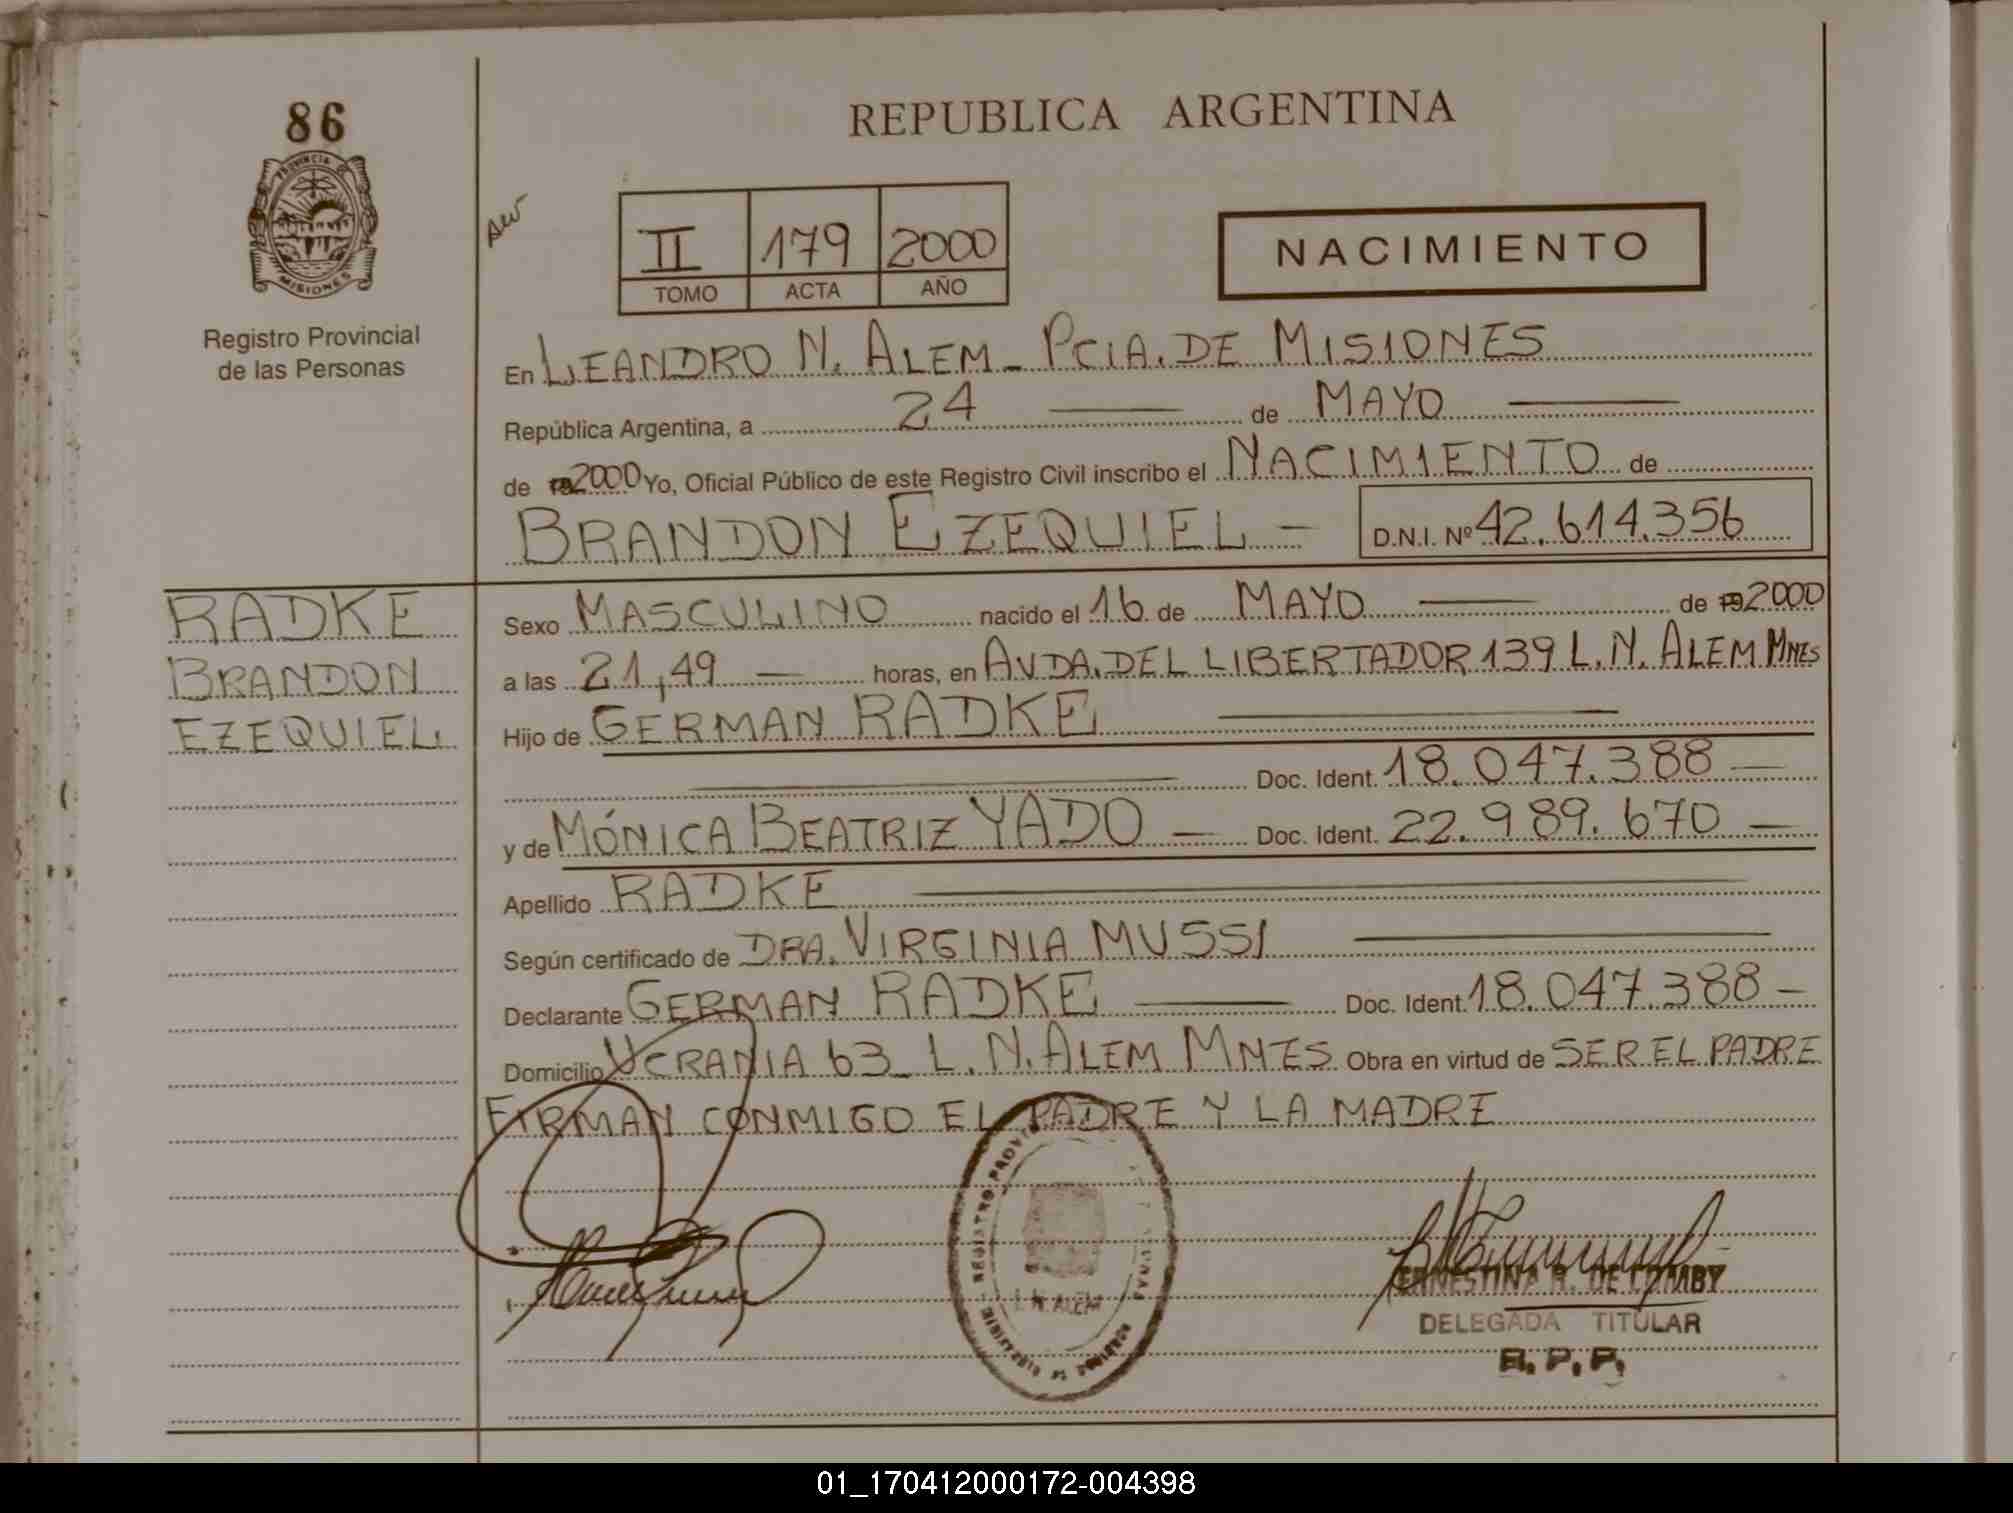 86
PROVINCIA DE
MISIONES
Registro Provincial
de las Personas
REPUBLICA ARGENTINA
II 179 2000
TOMO ACTA AÑO
NACIMIENTO
En LEANDRO N. ALEM - PCIA. DE MISIONES
República Argentina, a 24 de MAYO
de 2000 Yo, Oficial Público de este Registro Civil inscribo el NACIMIENTO de
BRANDON EZEQUIEL - D.N.I. Nº 42.614.356
RADKE
BRANDON
EZEQUIEL
Sexo MASCULINO nacido el 16 de MAYO de 2000
a las 21,49 horas, en AVDA. DEL LIBERTADOR 139 L. N. ALEM MNES
Hijo de GERMAN RADKE
Doc. Ident. 18.047.388
y de MÓNICA BEATRIZ YADO Doc. Ident. 22.989.670
Apellido RADKE
Según certificado de DRA. VIRGINIA MUSSI
Declarante GERMAN RADKE Doc. Ident. 18.047.388
Domicilio UCRANIA 63 L. N. ALEM MNES Obra en virtud de SER EL PADRE
FIRMAN CONMIGO EL PADRE Y LA MADRE
L. N. ALEM
ERNESTINA R. DE LOMBY
DELEGADA TITULAR
R. P. P.
01_170412000172-004398